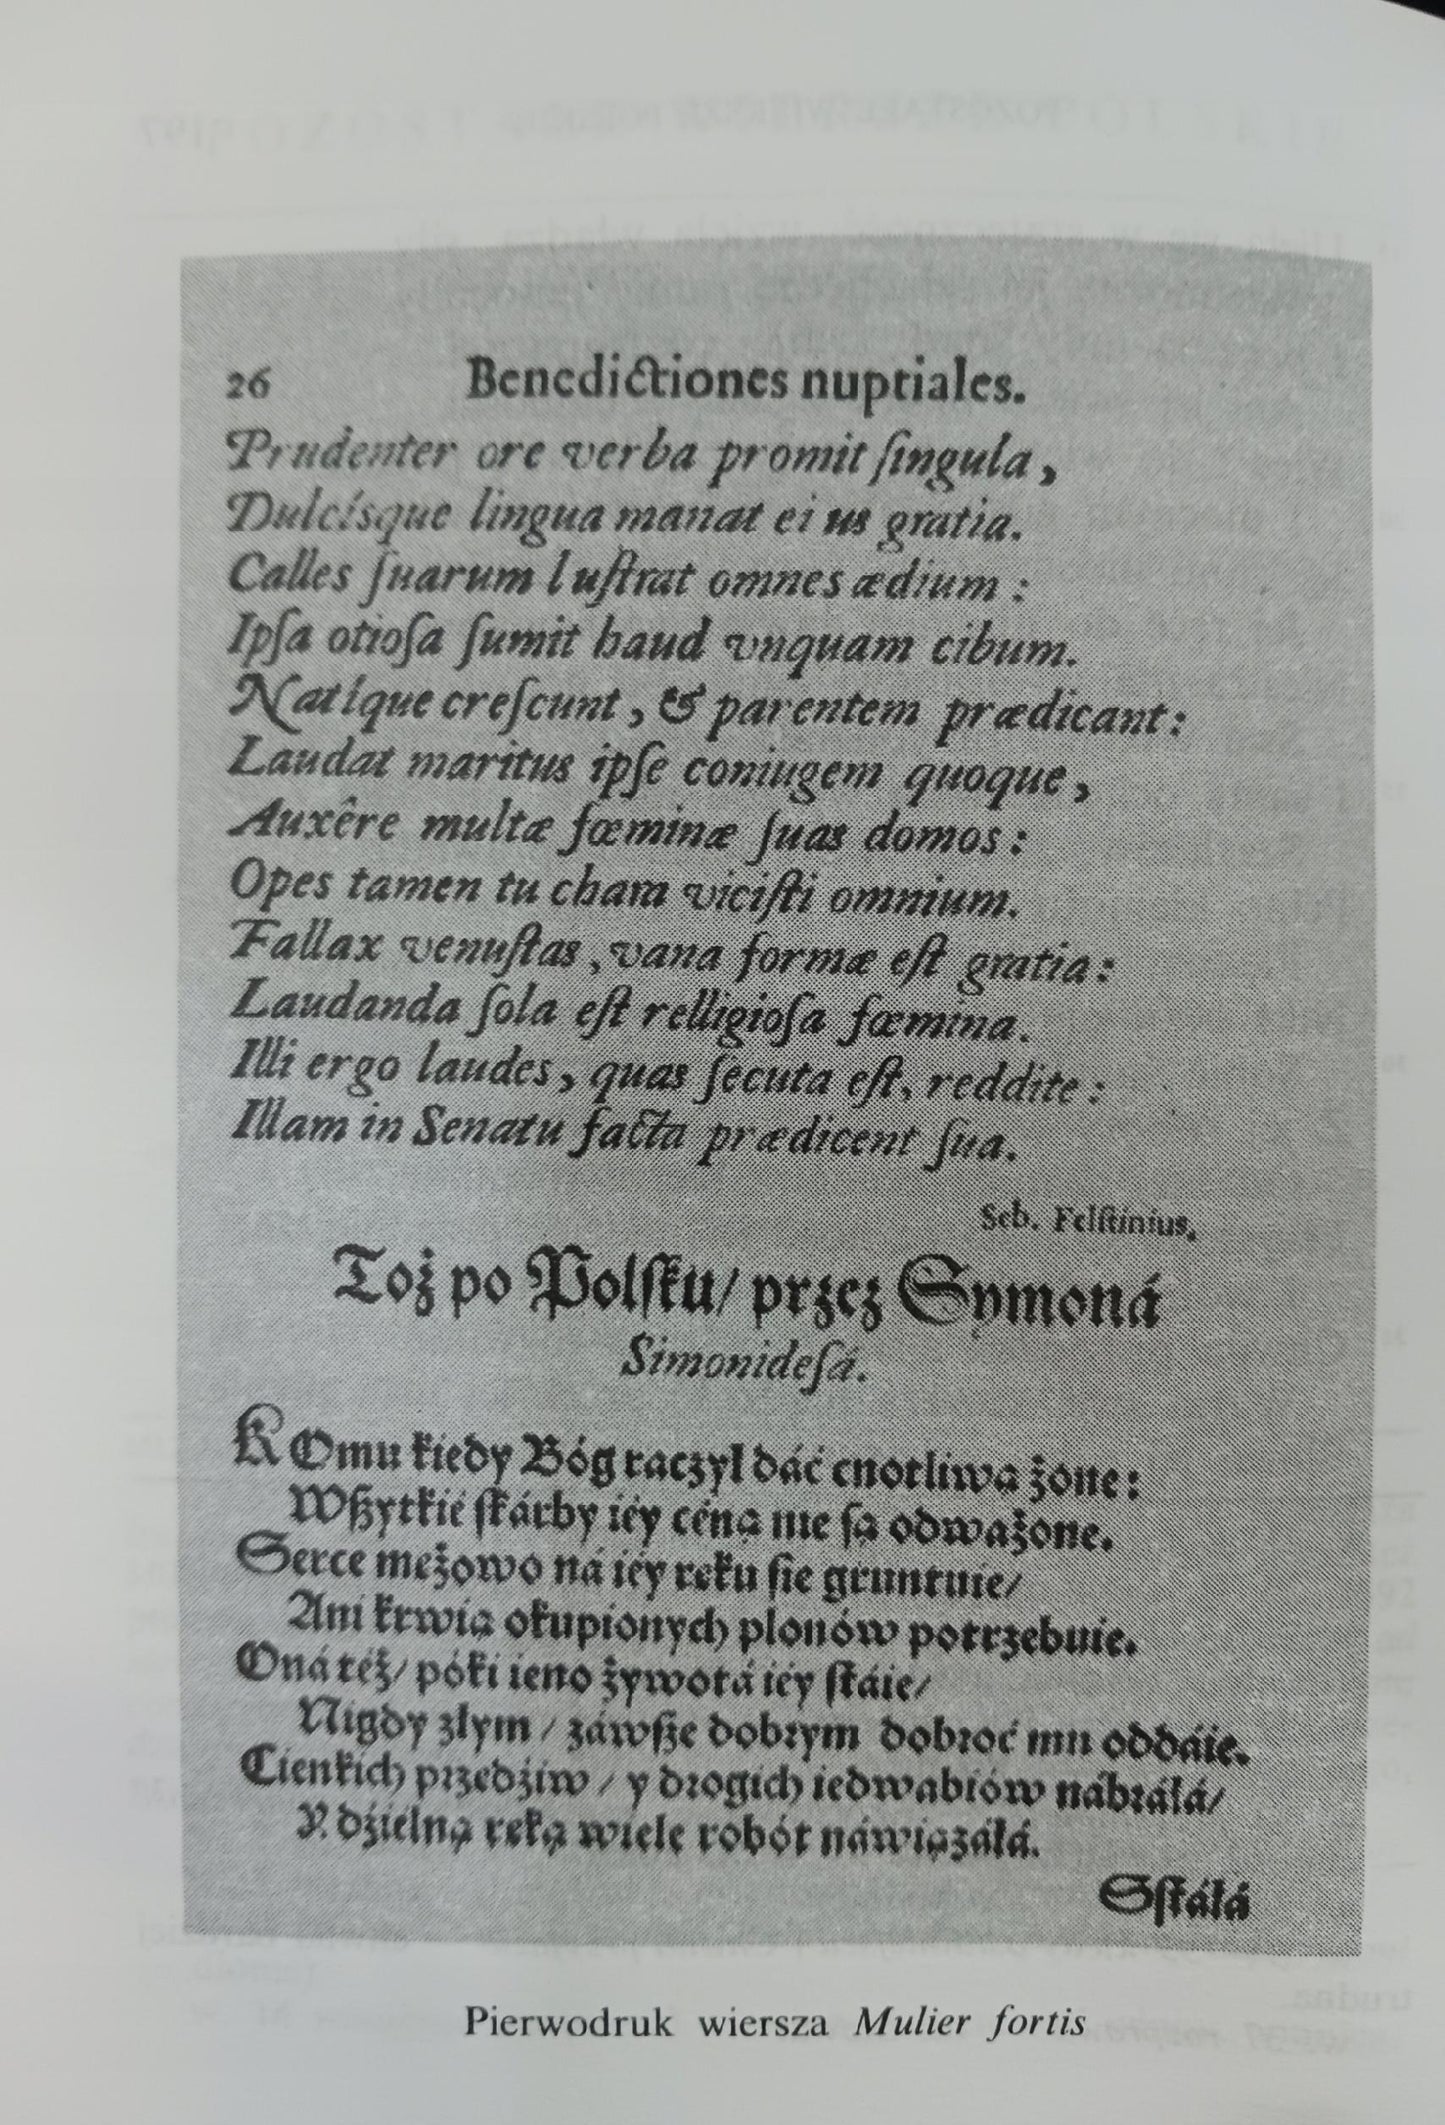 26 Benedictiones nuptiales.
Prudenter ore verba promit ſingula,
Dulcísque lingua manat ei us gratia.
Calles ſuarum luſtrat omnes ædium:
Ipſa otioſa ſumit haud vnquam cibum.
Natíque creſcunt, & parentem prædicant:
Laudat maritus ipſe coniugem quoque,
Auxêre multæ fœminæ ſuas domos:
Opes tamen tu chara viciſti omnium.
Fallax venuſtas, vana formæ eſt gratia:
Laudanda ſola eſt relligioſa fœmina.
Illi ergo laudes, quas ſecuta eſt, reddite:
Illam in Senatu facta prædicent ſua.
Seb. Felſtinius.
Toż po Polſku/ przez Symoná
Simonideſá.
KOmu kiedy Bóg raczył dáć cnotliwą żonę:
Wſzytkié ſkárby iéy céną nie ſą odważone.
Serce mężowo ná iéy ręku ſię gruntuie/
Ani krwią okupionych plonów potrzebuie.
Oná też/ póki ieno żywotá iéy ſtáie/
Nigdy złym/ záwſze dobrym dobroć mu oddáie.
Cienkich przędźiw/ y drogich iedwabiów nábráłá/
Y dźielną ręką wiele robót náwiązáłá.
Sſtáłá
Pierwodruk wiersza Mulier fortis